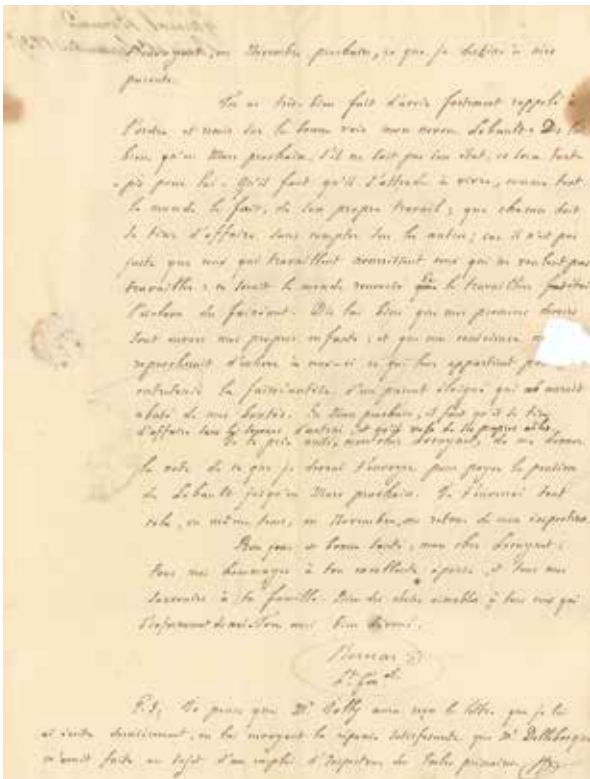 en Novembre prochain, ce que je destine à mes
parents.
Tu as très-bien fait d'avoir fortement rappelé à
l'ordre et remis sur la bonne voie mon neveu Débaulte. Dis lui
bien qu'en Mars prochain, s'il ne sait pas son état, ce sera tant
pis pour lui. Qu'il faut qu'il s'attende à vivre, comme tout
le monde le fait, de son propre travail; que chacun doit
se tirer d'affaire sans compter sur les autres; car il n'est pas
juste que ceux qui travaillent nourrissent ceux qui ne veulent pas
travailler: ce serait le monde renversé le travailleur
l'esclave du fainéant. Dis lui bien que mes premiers devoirs
sont envers mes propres enfants; et que ma conscience
reprocherait d'enlever à ceux-ci ce qui leur appartient pour
entretenir la fainéantise d'un parent éloigné qui aurait
abusé de mes bontés. En Mars prochain, il faut qu'il se tire
d'affaire sans le secours d'autrui, et qu'il vole de ses propres ailes.
Je te prie aussi, mon cher de me donner
la note de ce que je devrai t'envoyer pour payer la pension
de Débaulte jusqu'en Mars prochain. Je t'enverrai tout
cela, en même temps, en Novembre, au retour de mon inspection.
Bonjour et bonne santé, mon cher
tous mes hommages à ton excellente épouse, et tous mes
souvenirs à ta famille. Bien des choses aimables à tous ceux qui
Ton ami bien dévoué.
Bernard
P.S. Je pense que Mr. aura reçu la lettre que je lui
ai écrite dernièrement, en lui envoyant la réponse satisfaisante que Mr.
m'avait faite au sujet d'un emploi d'Inspecteur des Écoles primaires.